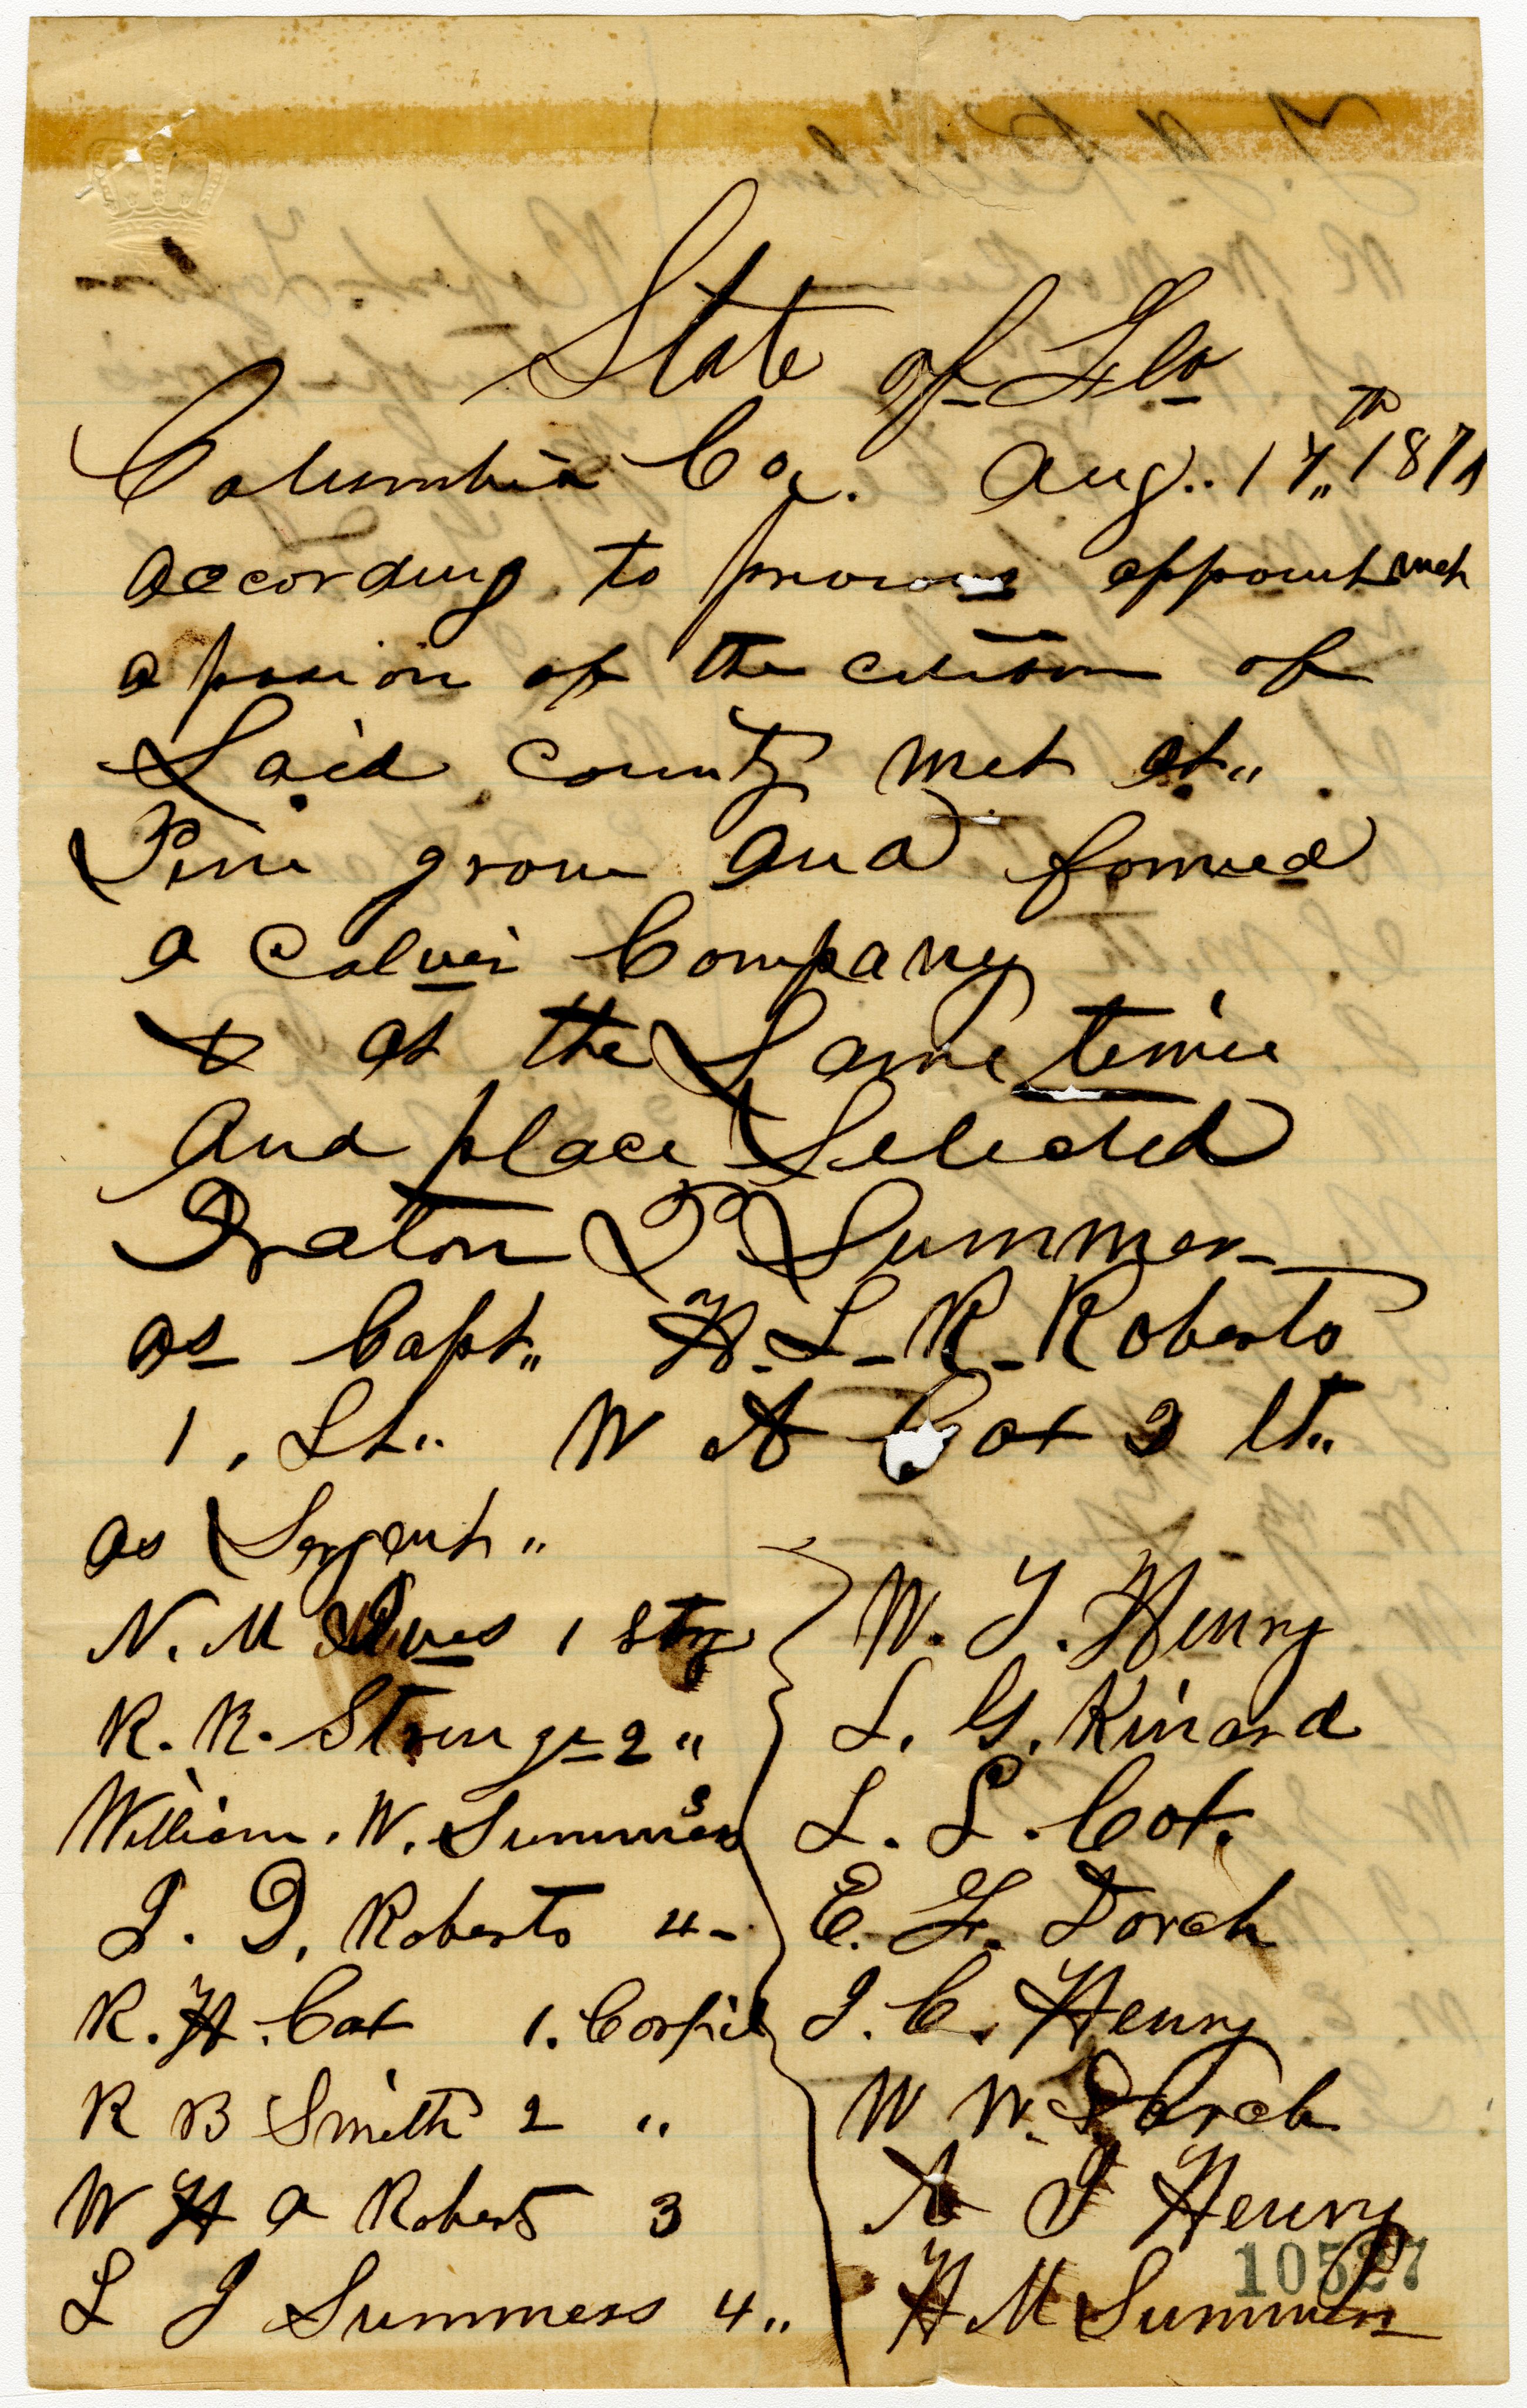 State of Flo
Columbia Co,. Aug.. 17th 187
according to previous appointment
a posion of the citison of
Said county met at"
Pine grove and formed
a Calvri Company
& at the Same time
and place Selected
P Summer
as Capt" H. L. R. Roberts
1, Lt.. W A Cox 2 lt"
as Sergent "
N. M Ives 1 Stg
R. R. Strenge 2 "
William. W. Summers 3
J. D. Roberts 4-
R. H. Cox 1. Corpil
R B Smith 2 "
W H A Roberts 3
L J Summers 4 "
W. J. Henry
L. G. Kinard
L. L. Cox.
E. F. Dorch
J. C. Henry
W W. Dorch
A J Henry
H M Summers
10527